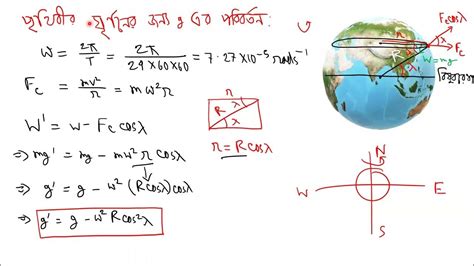 পৃথিবীর ঘূর্ণনের জন্য g এর পরিবর্তন:
ω = 2π/T = 2π/(24×60×60) = 7.27×10⁻⁵ rads⁻¹
F_c = mv²/r = mω²r
W' = W - F_c cosλ
⇒ mg' = mg - mω² r cosλ
⇒ g' = g - ω² (R cosλ) cosλ
⇒ g' = g - ω² R cos²λ
r
R λ λ
r = R cosλ
F_c cosλ
F_c
λ
r
W=mg
R
λ
বিষুবরেখা
N
W E
S